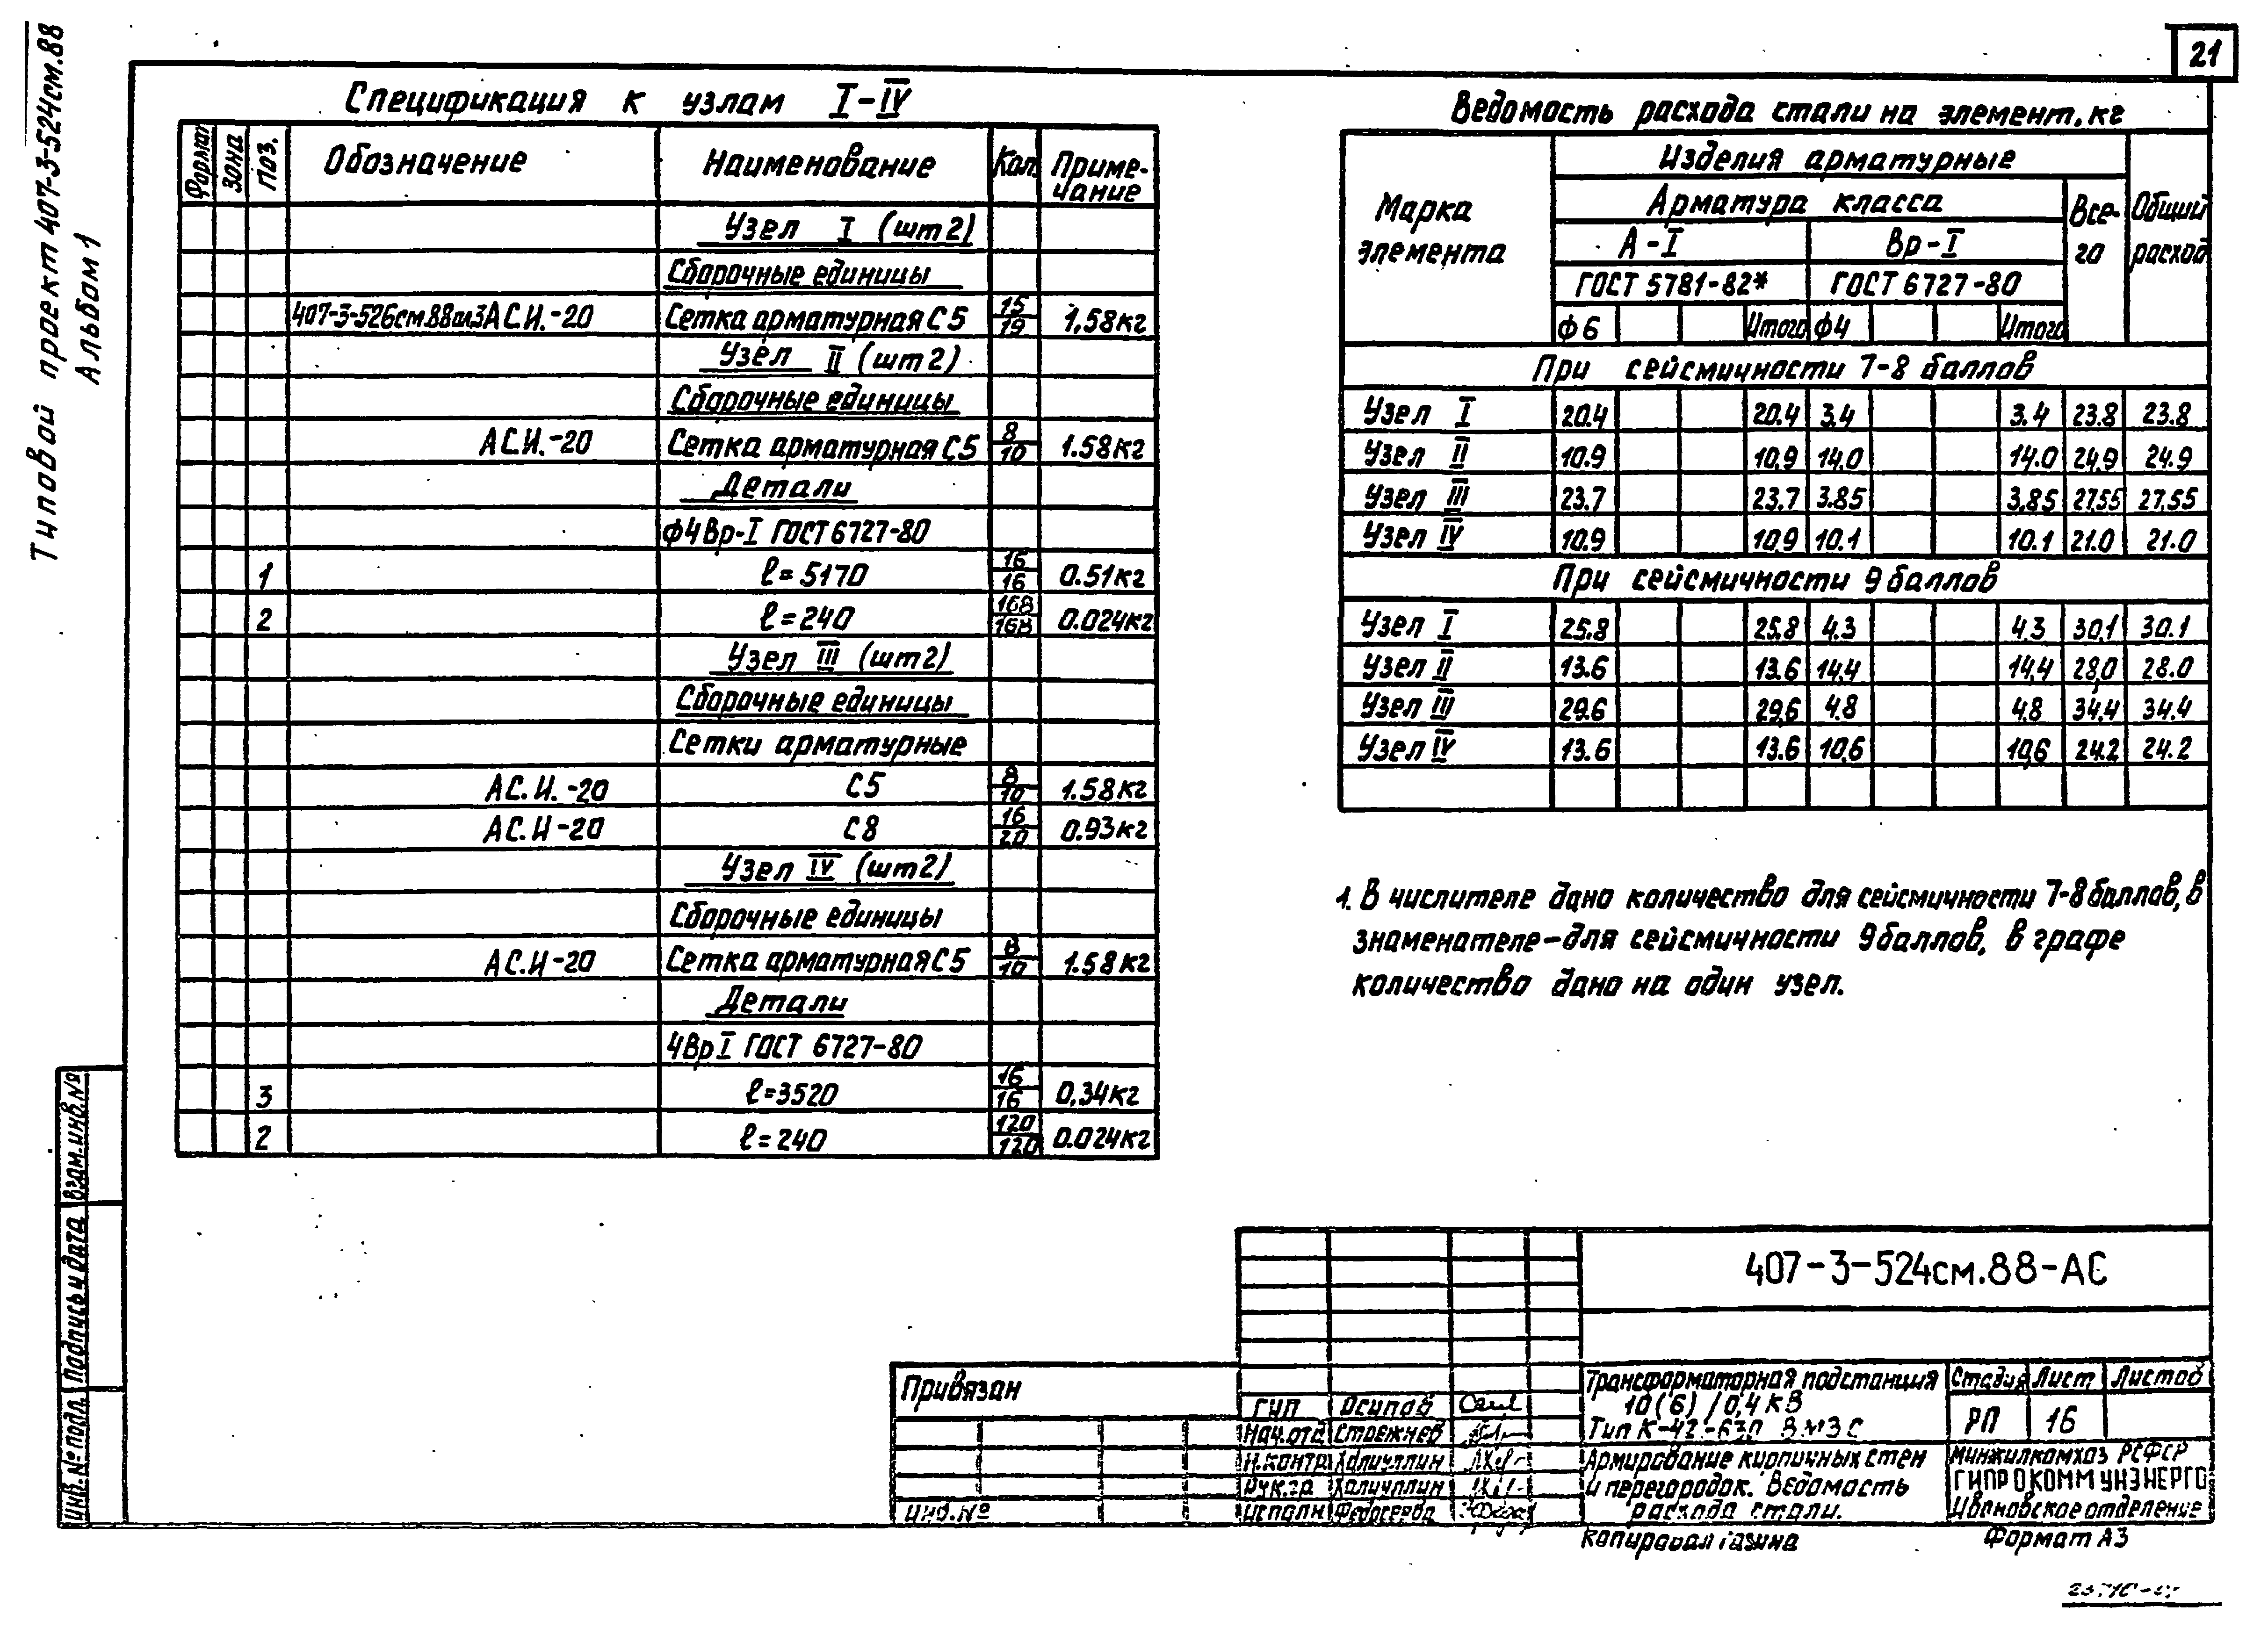 21
Типовой проект 407-3-524см.88
Альбом 1
Спецификация к узлам I-IV
Формат Зона Поз. Обозначение Наименование Кол. Примечание
Узел I (шт2)
Сборочные единицы
407-3-526см.88ал.3АС.И.-20 Сетка арматурная С5 15/19 1,58кг
Узел II (шт2)
Сборочные единицы
АС.И.-20 Сетка арматурная С5 8/10 1.58кг
Детали
ф4Вр-I ГОСТ 6727-80
1 ℓ=5170 16/16 0.51кг
2 ℓ=240 168/168 0.024кг
Узел III (шт2)
Сборочные единицы
Сетки арматурные
АС.И.-20 С5 8/10 1.58кг
АС.И-20 С8 16/20 0.93кг
Узел IV (шт2)
Сборочные единицы
АС.И-20 Сетка арматурная С5 8/10 1.58кг
Детали
4Вр I ГОСТ 6727-80
3 ℓ=3520 16/16 0,34кг
2 ℓ=240 120/120 0.024кг
Ведомость расхода стали на элемент, кг
Марка элемента Изделия арматурные Общий расход
Арматура класса Всего
А-I Вр-I
ГОСТ 5781-82* ГОСТ 6727-80
ф6 Итого ф4 Итого
При сейсмичности 7-8 баллов
Узел I 20.4 20.4 3.4 3.4 23.8 23.8
Узел II 10.9 10,9 14.0 14.0 24,9 24.9
Узел III 23.7 23,7 3.85 3,85 27,55 27,55
Узел IV 10.9 10,9 10.1 10.1 21.0 21.0
При сейсмичности 9 баллов
Узел I 25.8 25,8 4.3 4.3 30,1 30.1
Узел II 13.6 13.6 14,4 14,4 28,0 28.0
Узел III 29.6 29,6 4.8 4.8 34,4 34.4
Узел IV 13.6 13.6 10,6 10,6 24.2 24.2
1. В числителе дано количество для сейсмичности 7-8 баллов, в
знаменателе-для сейсмичности 9 баллов, в графе
количество дано на один узел.
Взам.инв.№
Подпись и дата
Инв.№ подл.
407-3-524см.88-АС
Привязан
Инв.№
ГИП Осипов
Нач.отд Стрежнев
Н.контр Халиуллин
Рук.гр. Халиуллин
Исполн Федосеева
Трансформаторная подстанция
10(6)/0,4кВ
Тип К-42-630 В М3 С
Стадия Лист Листов
РП 16
Армирование кирпичных стен
и перегородок. Ведомость
расхода стали.
Минжилкомхоз РСФСР
ГИПРОКОММУНЭНЕРГО
Ивановское отделение
Копировал
Формат А3